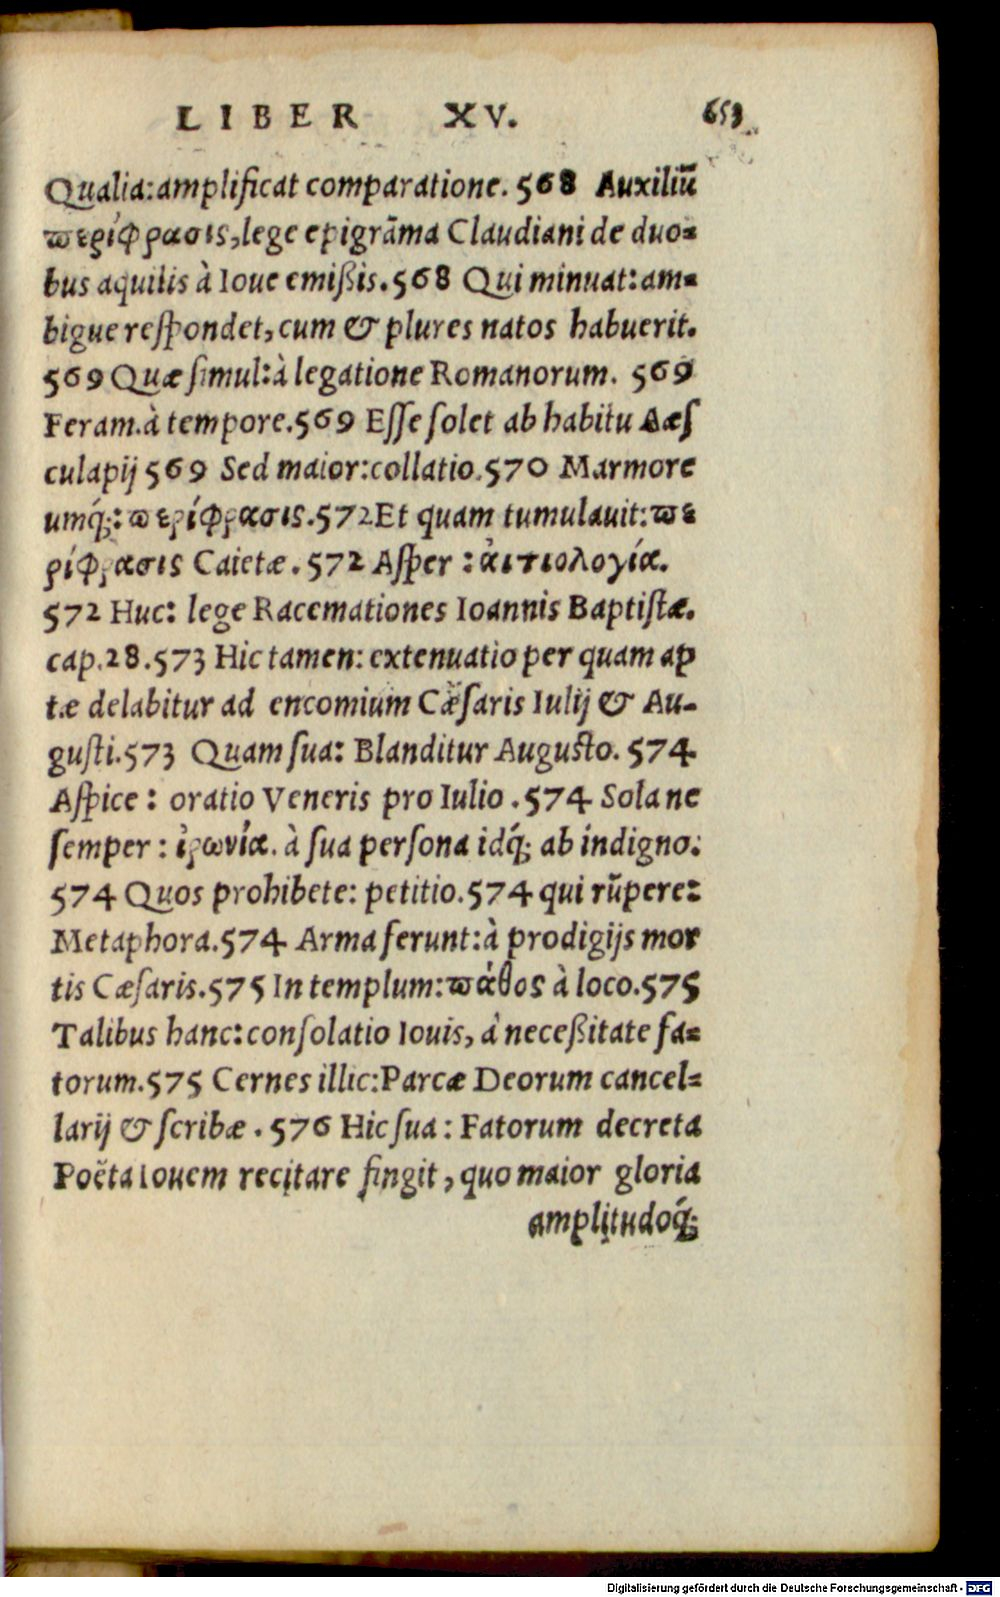 LIBER XV. 653
Qualia:amplificat comparatione. 568 Auxiliū
ϖερίφρασις,lege epigrāma Claudiani de duo-
bus aquilis à Ioue emißis.568 Qui minuat:am-
bigue reſpondet,cum & plures natos habuerit.
569 Quæ ſimul:à legatione Romanorum. 569
Feram.à tempore.569 Eſſe ſolet ab habitu Aæſ
culapij 569 Sed maior:collatio.570 Marmore
umq́;:ϖερίφρασις.572Et quam tumulauit:ϖε
ρίφρασις Caietæ. 572 Aſper : ἀιτιολογία.
572 Huc: lege Racemationes Ioannis Baptiſtæ.
cap.28.573 Hic tamen: extenuatio per quam ap
tæ delabitur ad encomium Cæſaris Iulij & Au-
guſti.573 Quam ſua: Blanditur Auguſto. 574
Aſpice : oratio Veneris pro Iulio .574 Sola ne
ſemper : ἰρωνία. à ſua perſona idq́; ab indigno:
574 Quos prohibete: petitio.574 qui rūpere:
Metaphora.574 Arma ferunt:à prodigijs mor
tis Cæſaris.575 In templum:ϖάθος à loco.575
Talibus hanc:conſolatio Iouis, à neceßitate fa-
torum.575 Cernes illic:Parcæ Deorum cancel-
larij & ſcribæ . 576 Hic ſua : Fatorum decreta
Poëta Iouem recitare fingit, quo maior gloria
amplitudoq́;
Digitalisierung gefördert durch die Deutsche Forschungsgemeinschaft - DFG